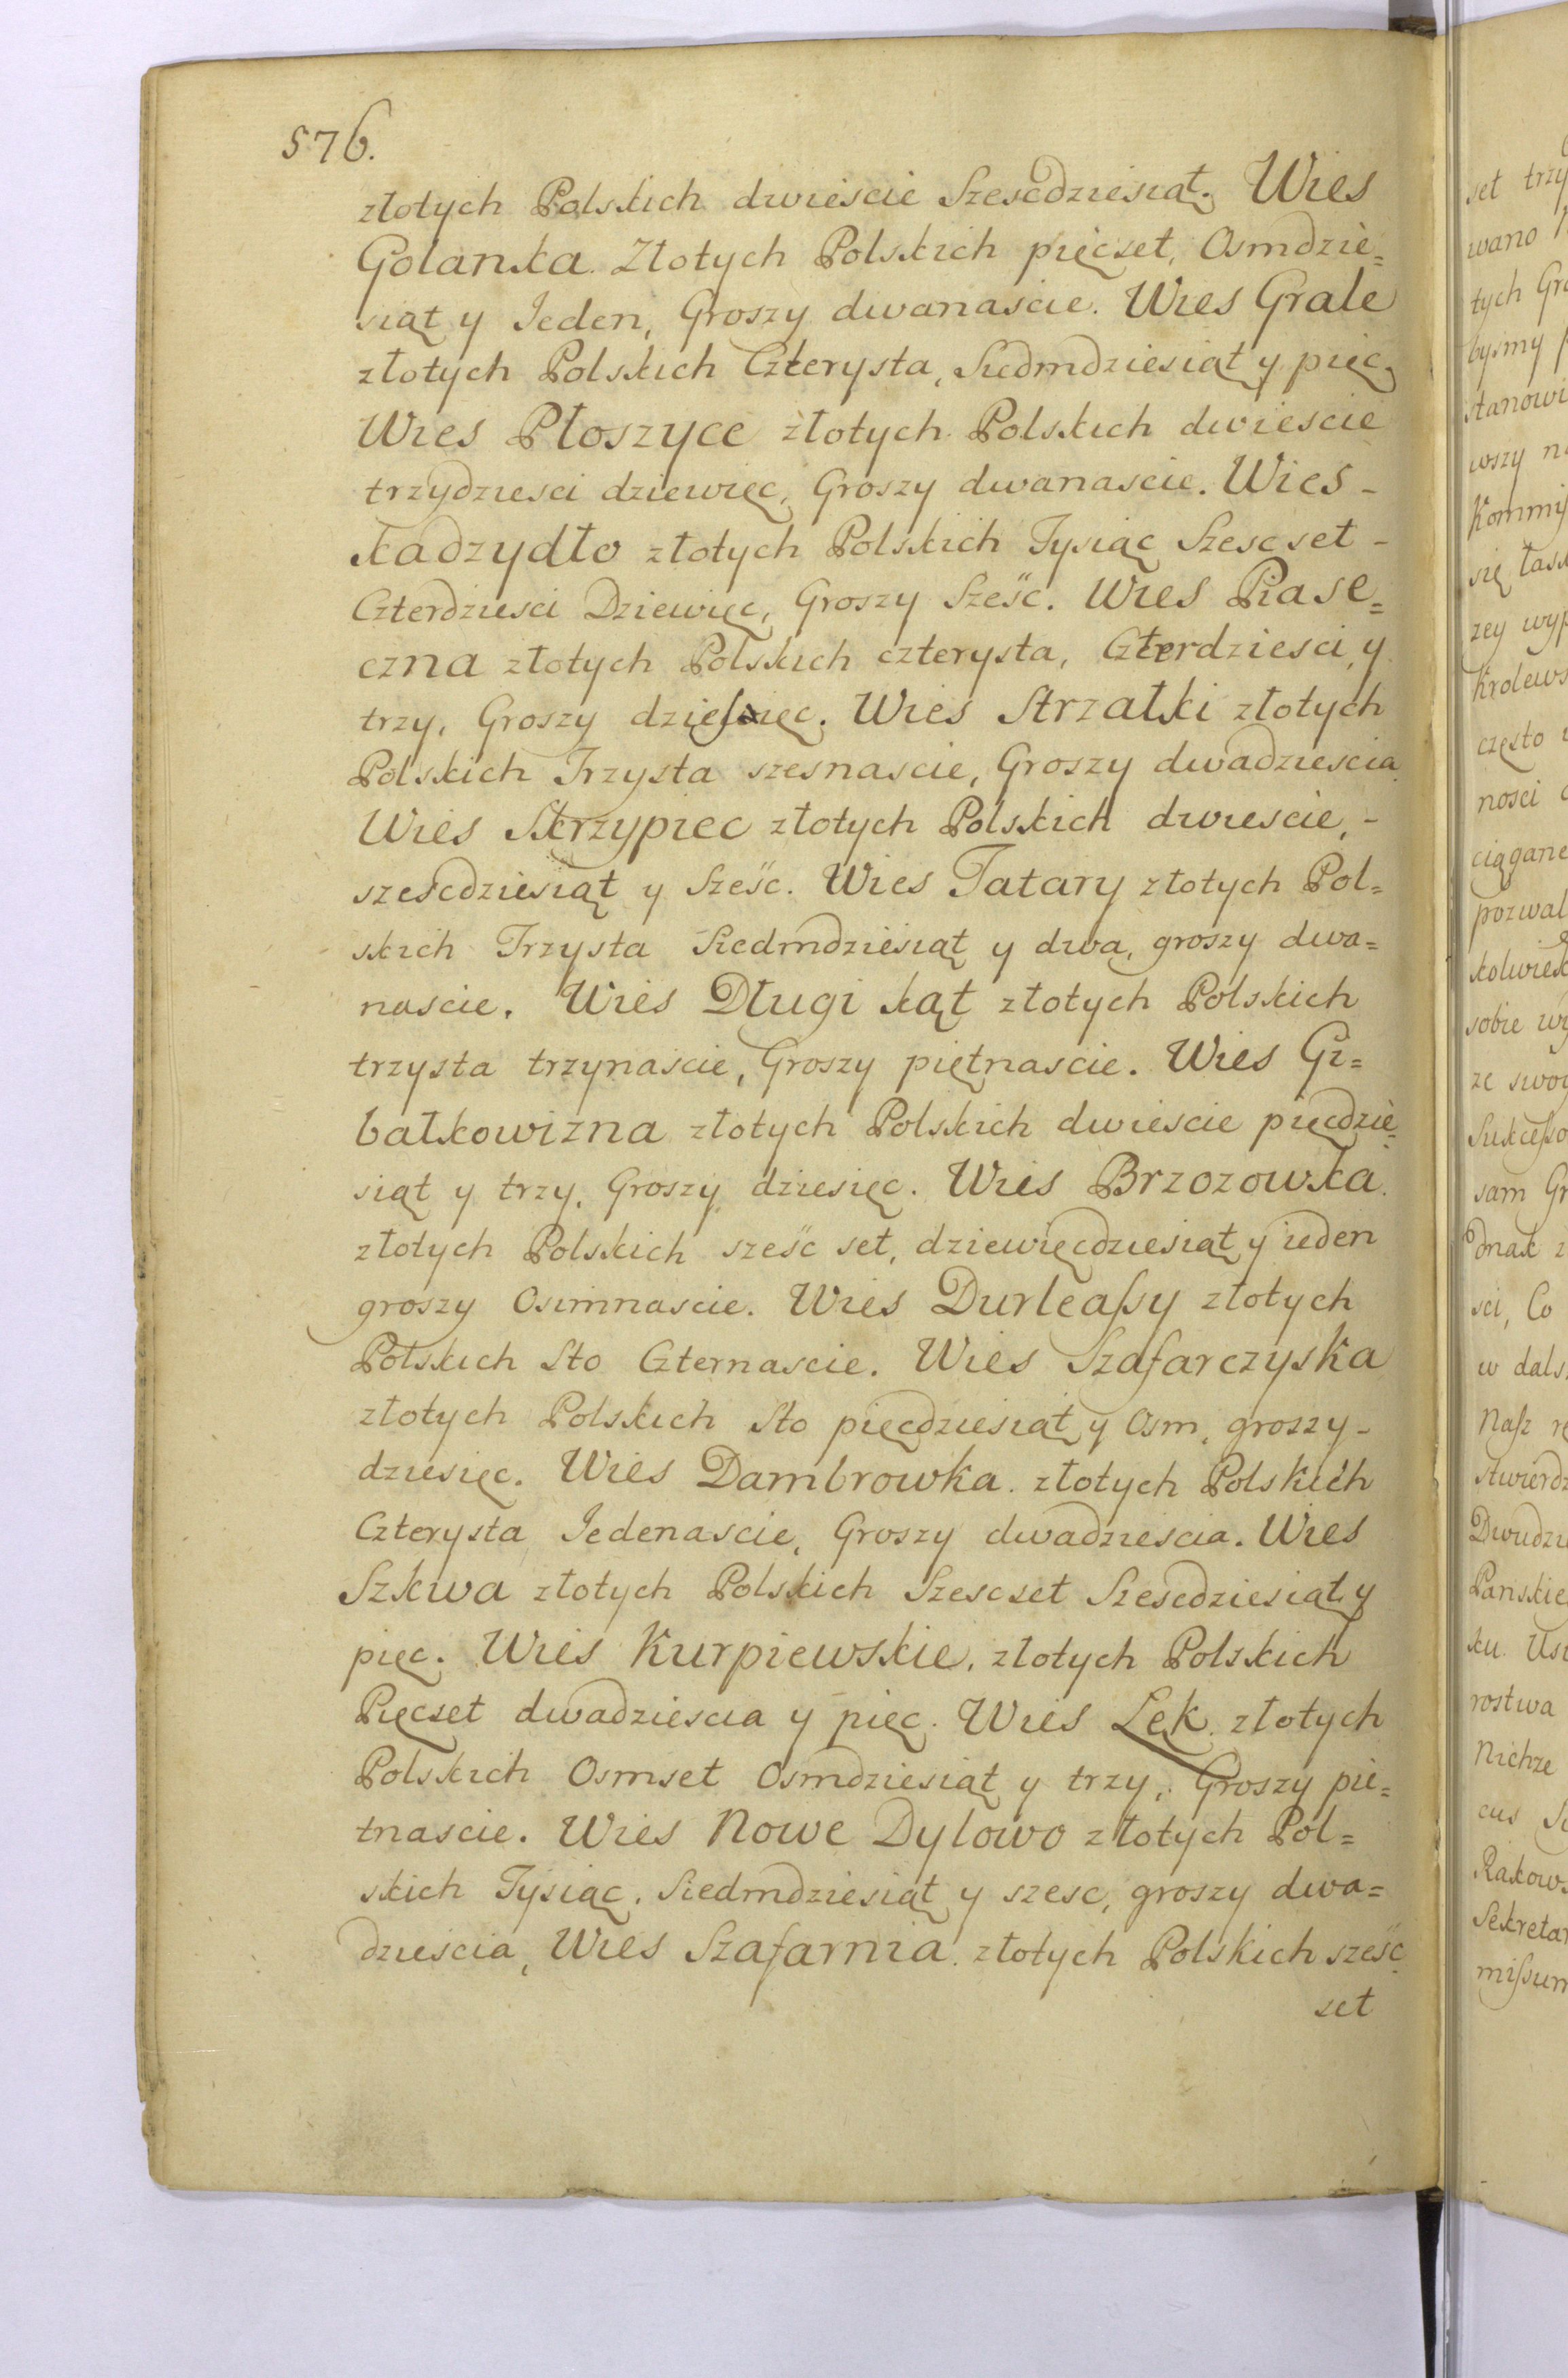 576.
złotych Polskich dwiescie Szescdziesiąt. Wies
Golanka. Złotych Polskich pięcset, Osmdzie=
siąt y Ieden, Groszy dwanascie. Wies Grale
złotych Polskich Czterysta, Siedmdziesiąt y pięc,
Wies Płoszyce złotych Polskich dwiescie
trzydziesci dziewięc, Groszy dwanascie. Wies -
Kadzydło złotych Polskich Tysiąc Szescset -
Czterdziesci Dziewięc, Groszy Sześc. Wies Piase=
czna złotych Polskich czterysta, Czterdziesci, y
trzy, Groszy dziesięc. Wies Strzałki złotych
Polskich Trzysta szesnascie, Groszy dwadziescia.
Wies Skrzypiec złotych Polskich dwiescie, -
szescdziesiąt y Sześc. Wies Tatary złotych Pol=
skich Trzysta Siedmdziesiąt y dwa, groszy dwa=
nascie. Wies Długi kąt złotych Polskich
trzysta trzynascie, Groszy piętnascie. Wies Gi=
bałkowizna złotych Polskich dwiescie pięcdzie=
siąt y trzy, Groszy dziesięc. Wies Brzozowka.
złotych Polskich sześc set, dziewięcdziesiąt y ieden
groszy Osimnascie. Wies Durleaſsy złotych
Polskich Sto Czternascie. Wies Szafarczyska
złotych Polskich Sto pięcdziesiąt y Osm, groszy -
dziesięc. Wies Dambrowka. złotych Polskich
Czterysta Iedenascie, Groszy dwadziescia. Wies
Szkwa złotych Polskich Szescset Szescdziesiąt y
pięc. Wies Kurpiewskie, złotych Polskich
Pięcset dwadziescia y pięc. Wies Lęk. złotych
Polskich Osmset Osmdziesiąt y trzy, Groszy pie=
tnascie. Wies Nowe Dylowo złotych Pol=
skich Tysiąc, Siedmdziesiąt y szesc, groszy dwa=
dziescia, Wies Szafarnia. złotych Polskich sześc
set